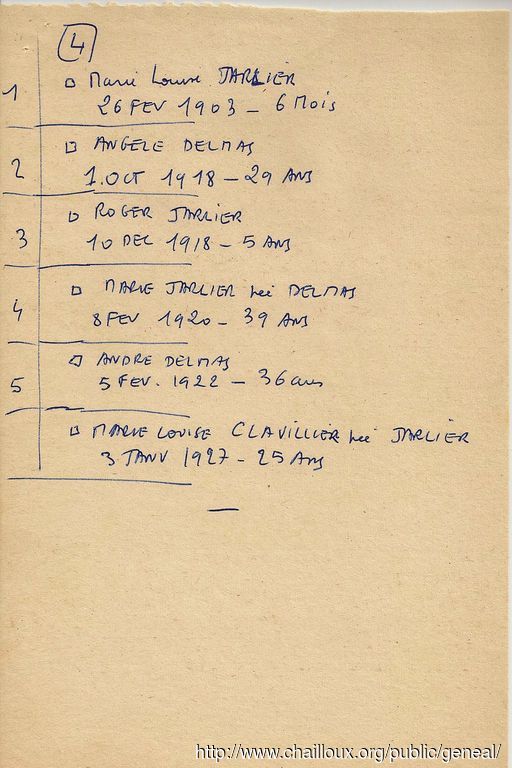 4
1
□ Marie Louise JARLIER
26 FEV 1903 - 6 MOIS
2
□ ANGELE DELMAS
1.OCT 1918 - 29 ANS
3
□ ROGER JARLIER
10 DEC 1918 - 5 ANS
4
□ MARIE JARLIER née DELMAS
8 FEV 1920 - 39 ANS
5
□ ANDRE DELMAS
5 FEV. 1922 - 36 ans
□ MARIE LOUISE CLAVILLIER née JARLIER
3 JANV 1927 - 25 ANS
http://www.chailloux.org/public/geneal/